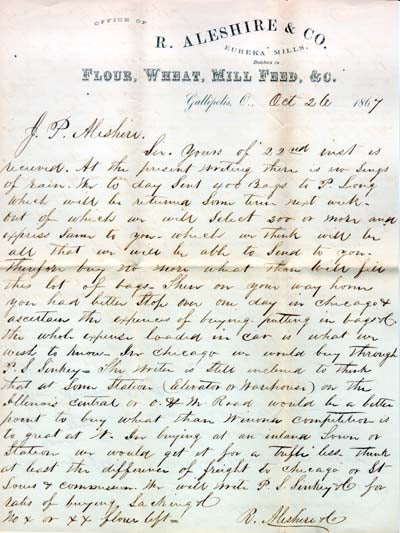 OFFICE OF
R. ALESHIRE & CO.
EUREKA MILLS,
Dealers in
FLOUR, WHEAT, MILL FEED, &C.
Gallipolis, O., Oct 26 1867
J. P. Aleshire.
Sir. Yours of 22nd inst is
recieved. At the present writing there is no sings
of rain. We to day sent 400 Bags to P. Long
which will be returned some time next week.
out of which we will select 200 or more and
express same to you. which we think will be
all that we will be able to send to you.
therefore buy no more wheat than will fill
this lot of bags. Then on your way home
you had better stop over one day in Chicago &
ascertain the expences of buying putting in bags &c
the whole expense loaded in car is what we
wish to know. In Chicago we would buy through
P. S. The writer is still inclined to think
that at some Station (Elevator or Warehouse) on the
Illinois Central or O. & M. Road would be a better
point to buy wheat than Winona competition is
to great at W. In buying at an inland Town or
Station we would get it for a trifle less. think
at least the difference of freight to Chicago or St
Louis & commission. We will write P. S. &c for
rates of buying Sacking &c
No x or xx flour left =
R. Aleshire &c